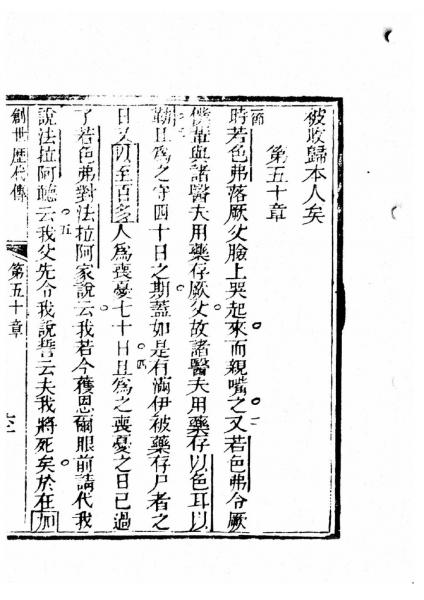 被收歸本人矣
第五十章
一節
時若色弗落厥父臉上哭起來而親嘴之二又若色弗令厥
僕輩與諸醫夫用藥存厥父故諸醫夫用藥存以色耳以
勒三且爲之守四十日之期蓋如是有滿伊被藥存尸者之
日又以至百多人爲喪憂七十日四且爲之喪憂之日已過
了若色弗對法拉阿家說云我若今獲恩爾眼前請代我
說法拉阿聽云五我父先令我說誓云夫我將死矣於在加
創世歷代傳
第五十章